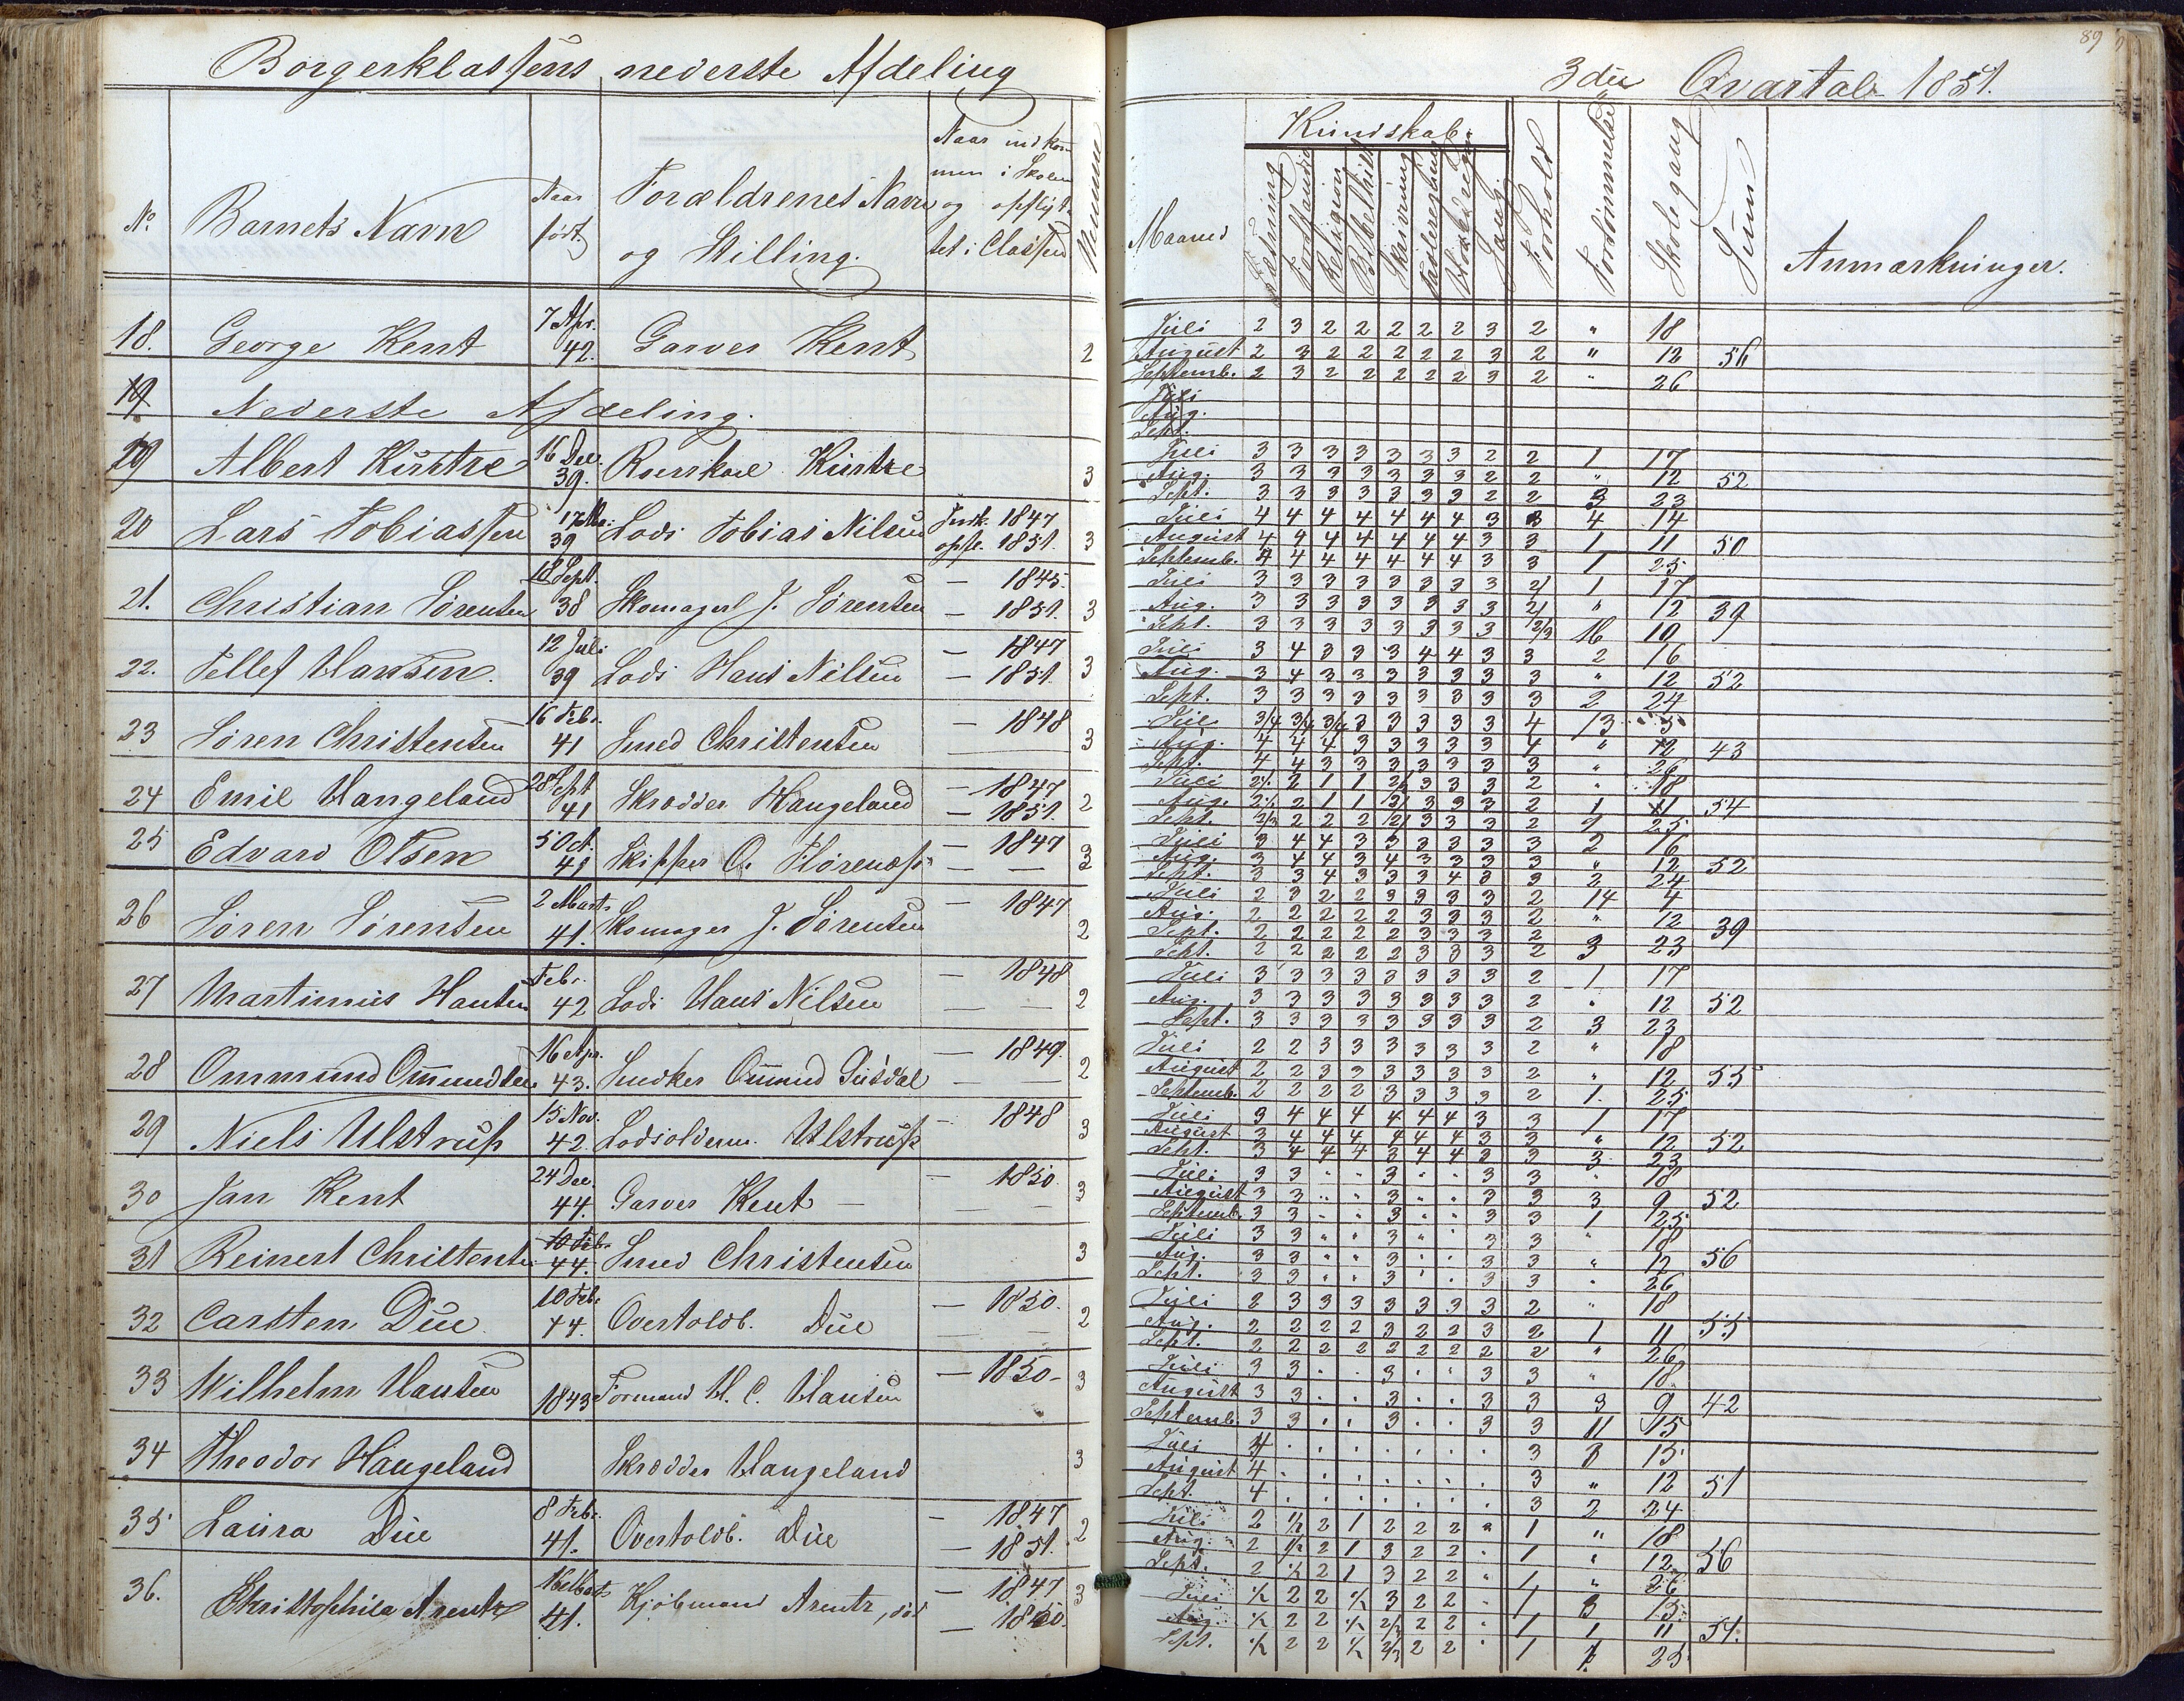 Borgerklassens nederste Afdeling
No. Barnets Navn Naar født. Forældrenes Navn og Stilling. Naar indkommen i Skolen og opflyttet i Classen
18. George Kent 7 Apr. 42. Garver Kent 2
19. Nederste Afdeling.
19 Albert 16 Dec. 39. 3
20 Lars Tobiassen 39 Lods Tobias Nilsen Indk. 1847 opfl. 1851. 3
21. Christian Sørensen 18 Sept. 38 Skomager J. Sørensen — 1845. — 1851. 3
22. Tellef Hansen. 12 Juli 39 Lods Hans Nilsen — 1847 — 1851. 3
23 Søren Christensen 16 Febr. 41 Smed Christensen — 1848 3
24 Emil Haugeland 28 Sept 41 Skrædder Haugeland — 1847 — 1851. 2
25 Edvard Olsen 5 Oct. 41 Skipper O. — 1847 — — 3
26 Søren Sørensen 2 Marts 41. Skomager J. Sørensen — 1847 2
27 Martinius Hansen Febr. 42 Lods Hans Nilsen — 1848 — — 2
28 Ommund Ommundsen 16 Apr. 43. Ommund — 1849. — — 2
29 Niels Ulstrup 15 Nov. 42. Lodsolderm. Ulstrup — 1848 3
30 Jan Kent 24 Dec. 44. Garver Kent — — 1850. — — 3
31 Reinert Christensen 10 Febr. 44. Smed Christensen 3
32 Carsten Due 10 Febr. 44. Overtoldb. Due — 1850. — — 2
33 Wilhelm Hansen 1843 Formand H. C. Hansen — 1850- 3
34 Theodor Haugeland Skrædder Haugeland 3
35 Laura Due 8 Febr. 41. Overtoldb. Due — 1847 — 1851. 2
36. Arentz 16 Marts 41. Kjøbmand Arentz, død — 1847 — 1850. 3
89
3die Qvartal 1851.
Maaned Kundskab. Læsning Forstand Religion Bibelhist. Skrivning Tavleregning Hovedregn. Sang. Forhold Forsømmelse Skolegang Sum Anmærkninger.
Juli 2 3 2 2 2 2 2 3 2 " 18
August 2 3 2 2 2 2 2 3 2 " 12 56
Septemb. 2 3 2 2 2 2 2 3 2 " 26
Juli
Aug.
Sept.
Juli 3 3 3 3 3 3 3 2 2 1 17
Aug. 3 3 3 3 3 3 3 2 2 " 12 52
Sept. 3 3 3 3 3 3 3 2 2 3 23
Juli 4 4 4 4 4 4 4 3 3 4 14
August 4 4 4 4 4 4 4 3 3 1 11 50
Septemb. 4 4 4 4 4 4 4 3 3 1 25
Juli 3 3 3 3 3 3 3 3 2/ 1 17
Aug. 3 3 3 3 3 3 3 3 2/ " 12 39
Sept. 3 3 3 3 3 3 3 3 2/3 16 10
Juli 3 4 3 3 3 4 4 3 3 2 16
Aug. 3 4 3 3 3 3 3 3 3 " 12 52
Sept. 3 3 3 3 3 3 3 3 3 2 24
Juli 3/4 3/4 3/4 3 3 3 3 3 4 13 5
Aug. 4 4 4 3 3 3 3 3 4 " 12 43
Sept. 4 4 3 3 3 3 3 3 3 " 26
Juli 2/ 2 1 1 2/ 3 3 3 2 " 18
Aug. 2/ 2 1 1 2/ 3 3 3 2 1 11 54
Sept. 2/3 2 2 2 2/ 3 3 3 2 1 25
Juli 3 4 4 3 3 3 3 3 3 2 16
Aug. 3 4 4 3 4 3 3 3 3 " 12 52
Sept. 3 3 4 3 3 3 4 3 3 2 24
Juli 2 3 2 2 3 3 3 3 2 14 4
Aug. 2 2 2 2 2 3 3 3 2 " 12 39
Sept. 2 2 2 2 2 3 3 3 2
Sept. 2 2 2 2 2 3 3 3 2 3 23
Juli 3 3 3 3 3 3 3 3 2 1 17
Aug. 3 3 3 3 3 3 3 3 2 " 12 52
Sept. 3 3 3 3 3 3 3 3 2 3 23
Juli 2 2 3 3 3 3 3 3 2 " 18
August 2 2 3 3 3 3 3 3 2 " 12 55
Septemb. 2 2 2 2 3 3 3 3 2 1. 25
Juli 3 4 4 4 4 4 4 3 3 1 17
August 3 4 4 4 4 4 4 3 3 " 12 52
Sept. 3 4 4 4 3 4 4 3 3 3 23
Juli 3 3 " " 3 " " 3 3 " 18
August 3 3 " " 3 " " 3 3 3 9 52
Septemb. 3 3 " " 3 " " 3 3 1 25
Juli 3 3 " " 3 " " 3 3 " 18
Aug. 3 3 " " 3 " " 3 3 " 12 56
Sept. 3 3 " " 3 " " 3 3 " 26
Juli 2 3 3 3 3 3 3 3 2 " 18
Aug. 2 2 2 2 3 2 2 3 2 1 11 55
Sept. 2 2 2 2 2 2 2 2 2 " 26
Juli 3 3 . . 3 . . 3 3 " 18
August 3 3 . . 3 . . 3 3 3 9 42
Septemb. 3 3 . . 3 . . 3 3 11 15
Juli 4 . . . . . . . 3 3 15
August 4 . . . . . . . 3 " 12 51
Sept. 4 . . . . . . . 3 2 24
Juli 2 1/2 2 1 2 2 2 " 1 " 18
Aug. 2 1/2 2 1 3 2 2 " 1 " 12 56
Sept. 2 1/2 2 1 3 2 2 " 1 " 26
Juli 1/2 2 2 1/2 3 2 2 " 1 3 15
Aug. 1/2 2 2 1/2 2/3 2 2 " 1 1 11 51.
Sept. 1/2 2 2 1/2 2/3 2 2 " 1 1 25